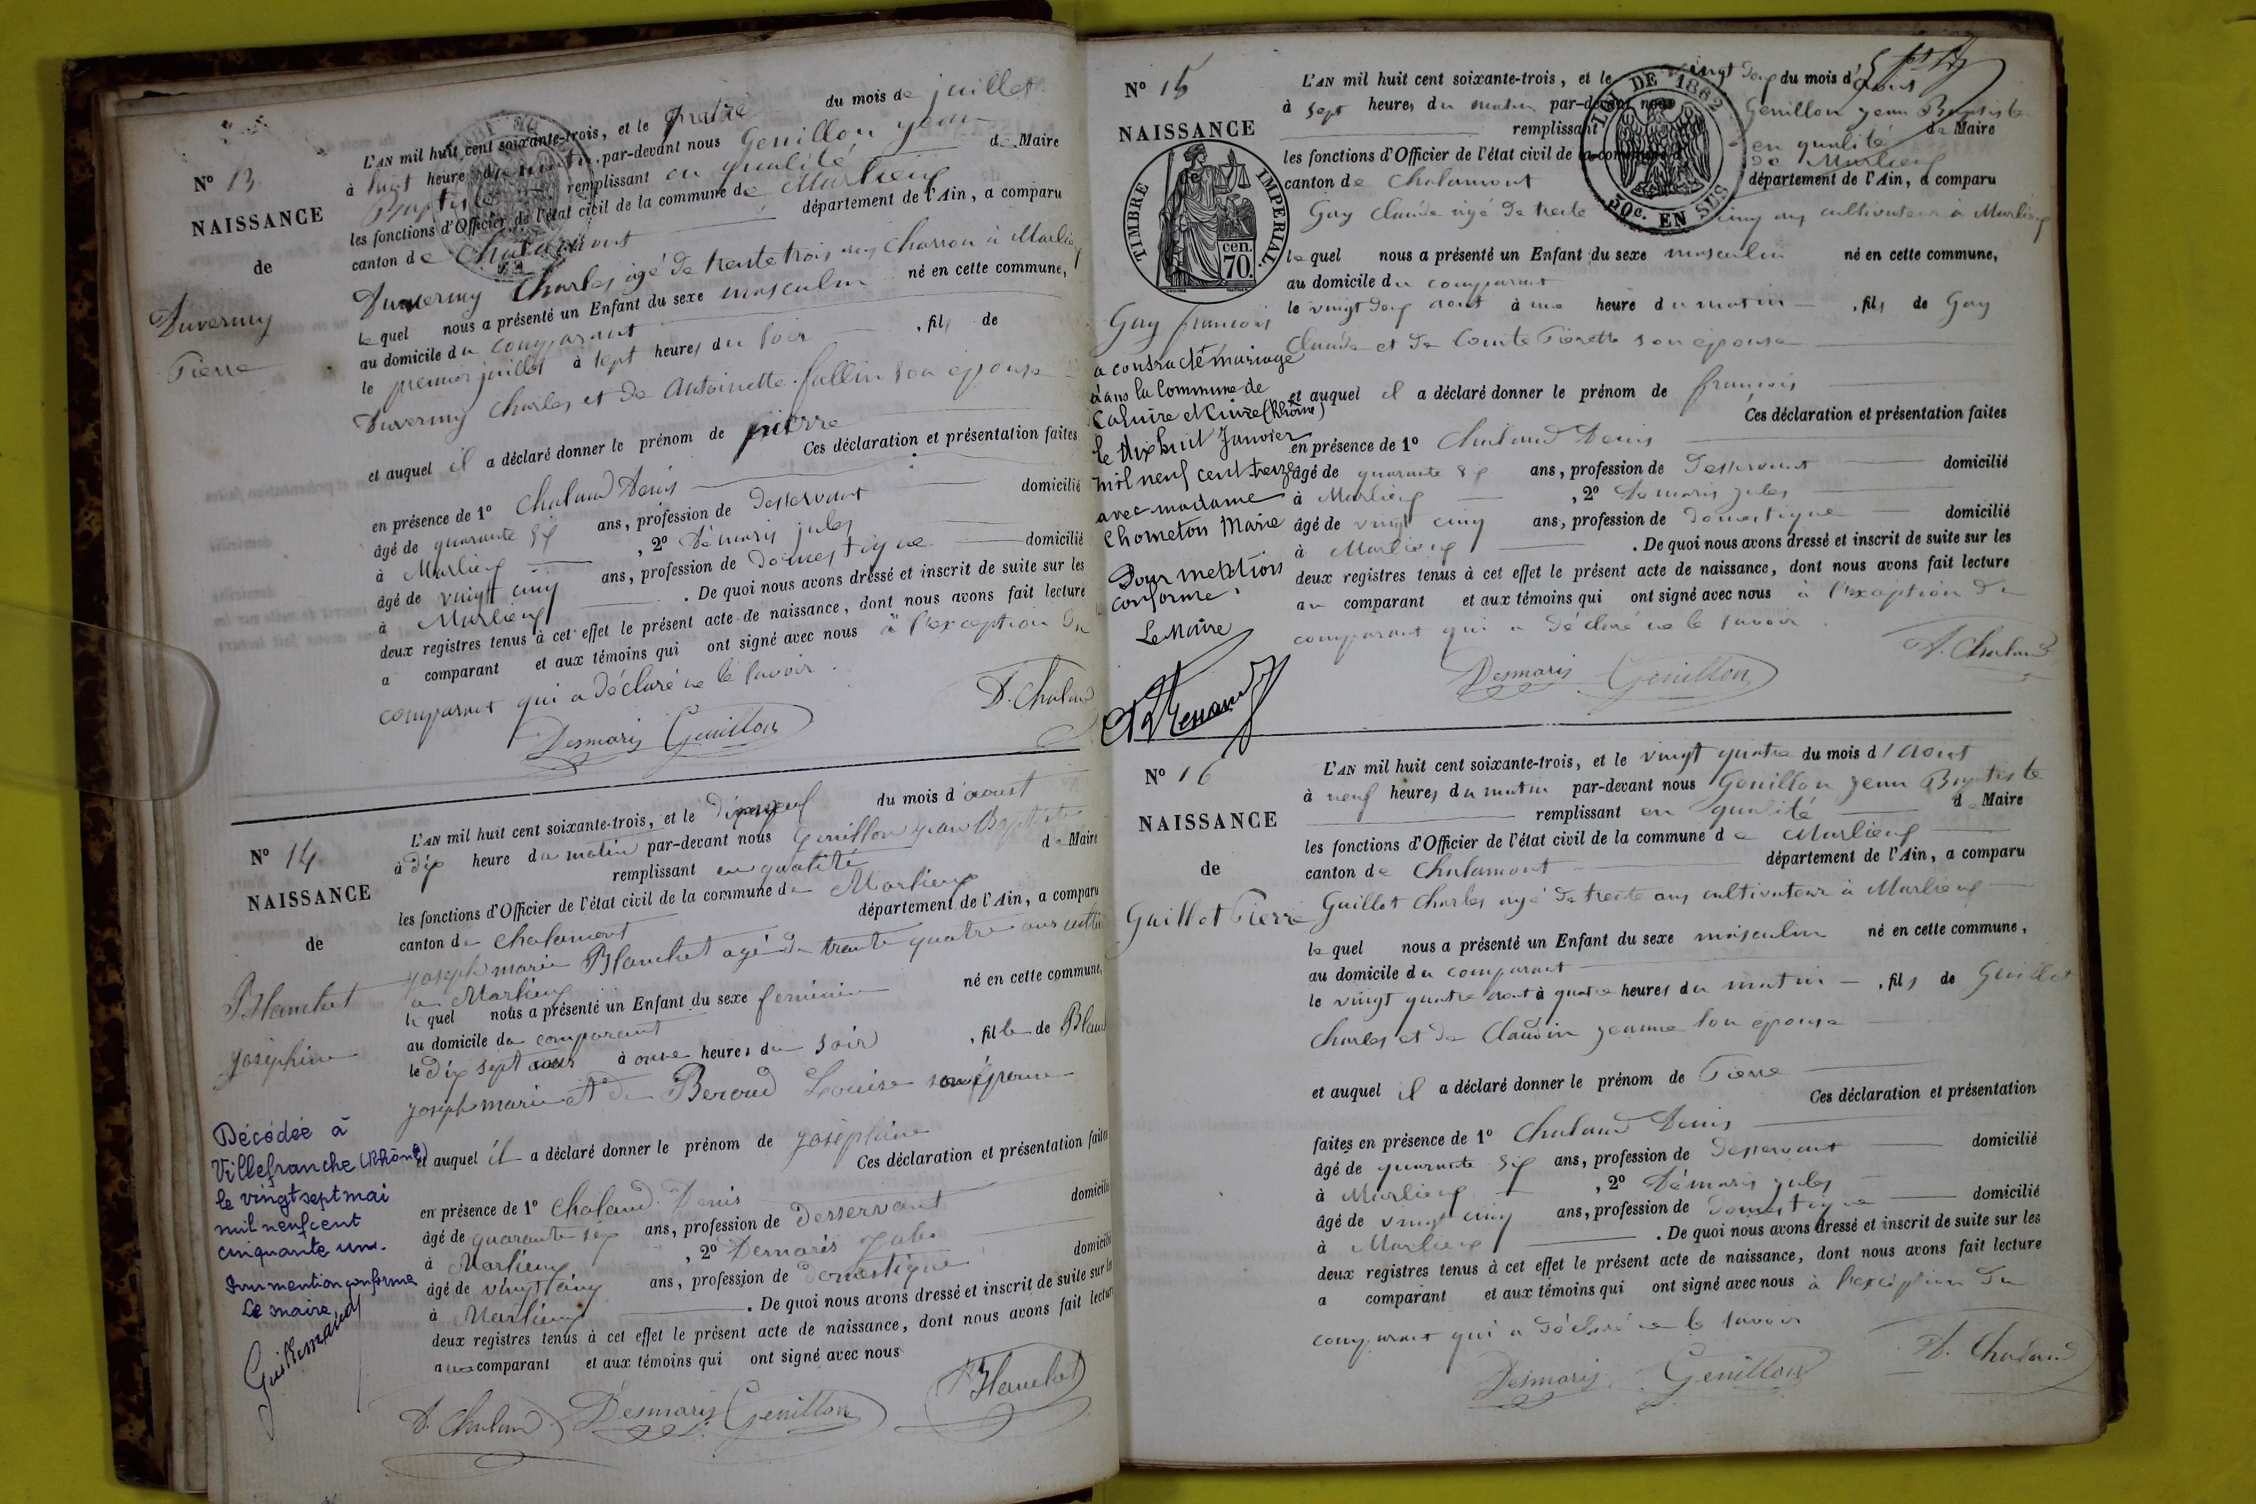 N° 13
NAISSANCE
de
Duvernay
Pierre
L'AN mil huit cent soixante-trois, et le quatre du mois de juillet
à huit heures du matin, par-devant nous Genillon Jean
Baptiste remplissant en qualité de Maire
les fonctions d'Officier de l'état civil de la commune de Marlieux
canton de Chalamont département de l'Ain, a comparu
Duvernay Charles âgé de trente trois ans charron à Marlieux
lequel nous a présenté un Enfant du sexe masculin né en cette commune,
au domicile du comparant
le premier juillet à sept heures du soir, fils de
Duvernay Charles et de Antoinette fallin son epouse
et auquel il a déclaré donner le prénom de pierre
Ces déclaration et présentation faites
en présence de 1° Chaland Denis
âgé de quarante six ans, profession de Desservant domicilié
à Marlieux, 2° Démaris jules
âgé de vingt cinq ans, profession de Domestique domicilié
à Marlieux. De quoi nous avons dressé et inscrit de suite sur les
deux registres tenus à cet effet le présent acte de naissance, dont nous avons fait lecture
a comparant et aux témoins qui ont signé avec nous à l'exception du
comparant qui a déclaré ne le savoir.
Desmaris Genillon D. Chaland
N° 14
NAISSANCE
de
Blanchet
joséphine
Décédée à
Villefranche (Rhône)
le vingt sept mai
mil neuf cent
cinquante un.
Pour mention conforme
Le maire
Guillemaud
L'AN mil huit cent soixante-trois, et le Dix neuf du mois d'aoust
à dix heure du matin par-devant nous Genillon jean Baptiste
remplissant en qualité de Maire
les fonctions d'Officier de l'état civil de la commune de Marlieux
canton de chalamont département de l'Ain, a comparu
joseph marie Blanchet agé de trente quatre ans
a Marlieux
lequel nous a présenté un Enfant du sexe feminin né en cette commune,
au domicile du comparant
le dix sept aout à onze heures du soir, fille de
joseph marie et de Beroud Louise son épouse
et auquel il a déclaré donner le prénom de joséphine
Ces déclaration et présentation faites
en présence de 1° Chaland Denis
âgé de quarante six ans, profession de Desservant domicilié
à Marlieux, 2° Demarès jules
âgé de vingt cinq ans, profession de domestique domicilié
à Marlieux. De quoi nous avons dressé et inscrit de suite sur les
deux registres tenus à cet effet le présent acte de naissance, dont nous avons fait lecture
au comparant et aux témoins qui ont signé avec nous
D. Chaland Desmaris Genillon Blanchet
N° 15
NAISSANCE
TIMBRE IMPERIAL
70 cen.
Gay françois
a contracté mariage
dans la Commune de
Caluire et Cuire (Rhône)
le dix huit Janvier
mil neuf cent treize
avec madame
Chometon Marie
Pour mention
conforme,
Le Maire
LOI DE 1862
50c. EN SUS
L'AN mil huit cent soixante-trois, et le vingt deux du mois d'aout
à sept heures du matin par-devant nous Genillon Jean Baptiste
remplissant en qualité de Maire
les fonctions d'Officier de l'état civil de la commune de Marlieux
canton de Chalamont département de l'Ain, a comparu
Gay Claude âgé de trente cinq ans cultivateur à Marlieux
lequel nous a présenté un Enfant du sexe masculin né en cette commune,
au domicile du comparant
le vingt deux aout à une heure du matin, fils de Gay
Claude et de Comte Pierrette son épouse
et auquel il a déclaré donner le prénom de françois
Ces déclaration et présentation faites
en présence de 1° Chaland Denis
âgé de quarante six ans, profession de Desservant domicilié
à Marlieux, 2° Démaris jules
âgé de vingt cinq ans, profession de domestique domicilié
à Marlieux. De quoi nous avons dressé et inscrit de suite sur les
deux registres tenus à cet effet le présent acte de naissance, dont nous avons fait lecture
au comparant et aux témoins qui ont signé avec nous à l'exception du
comparant qui a déclaré ne le savoir.
Desmaris Genillon D. Chaland
N° 16
NAISSANCE
de
Guillot Pierre
L'AN mil huit cent soixante-trois, et le vingt quatre du mois d'Aout
à neuf heures du matin par-devant nous Genillon Jean Baptiste
remplissant en qualité de Maire
les fonctions d'Officier de l'état civil de la commune de Marlieux
canton de Chalamont département de l'Ain, a comparu
Guillot Charles âgé de trente ans cultivateur à Marlieux
lequel nous a présenté un Enfant du sexe masculin né en cette commune,
au domicile du comparant
le vingt quatre aout à quatre heures du matin, fils de Guillot
Charles et de Claudin jeanne son epouse
et auquel il a déclaré donner le prénom de Pierre
Ces déclaration et présentation
faites en présence de 1° Chaland Denis
âgé de quarante six ans, profession de Desservant domicilié
à Marlieux, 2° Démaris jules
âgé de vingt cinq ans, profession de Domestique domicilié
à Marlieux. De quoi nous avons dressé et inscrit de suite sur les
deux registres tenus à cet effet le présent acte de naissance, dont nous avons fait lecture
a comparant et aux témoins qui ont signé avec nous à l'exception du
comparant qui a déclaré ne le savoir
Desmaris Genillon D. Chaland